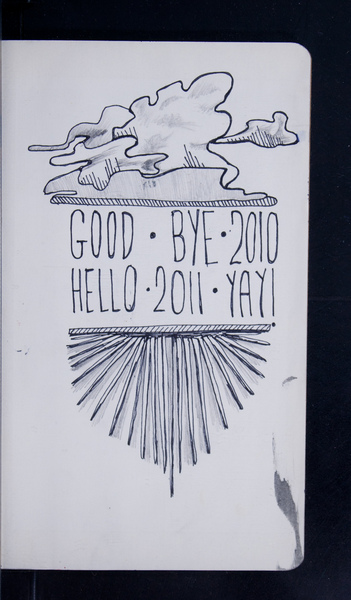 GOOD • BYE • 2010
HELLO • 2011 • YAY!